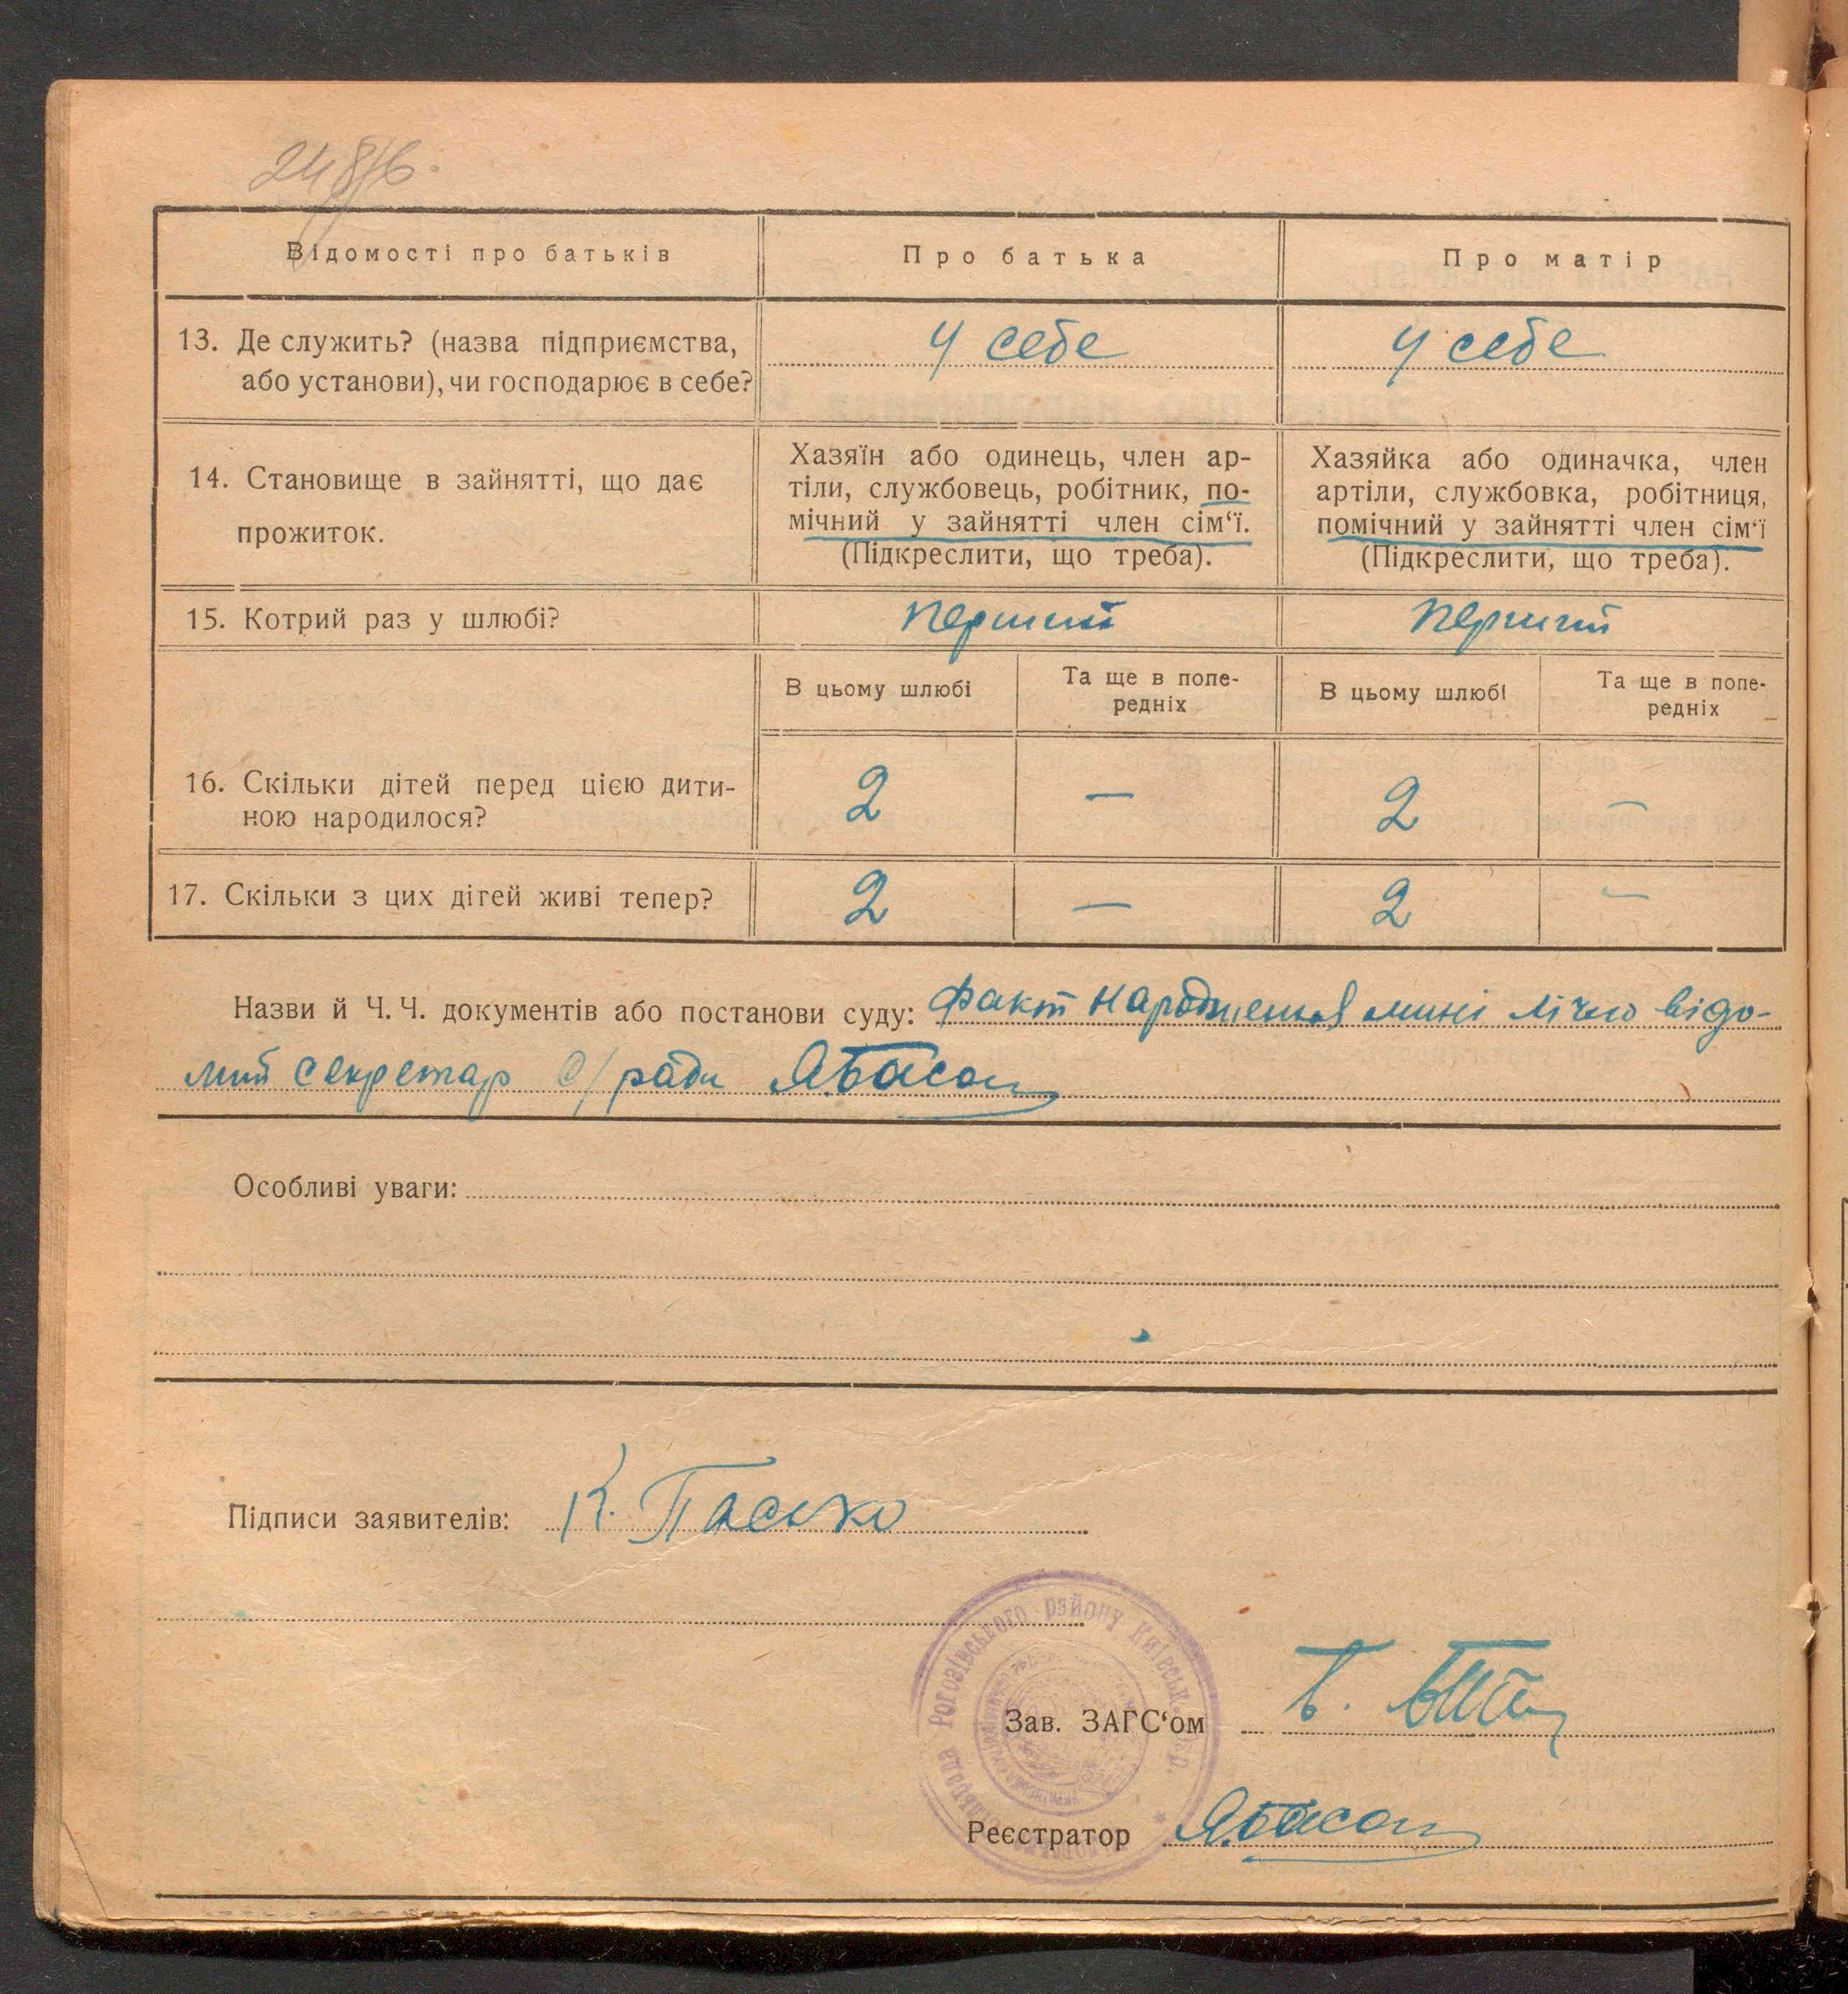 Відомості про батьків
Про батька
Про матір
13. Де служить? (назва підприємства,
або установи), чи господарює в себе?
У себе
У себе
14. Становище в зайнятті, що дає
прожиток.
Хазяїн або одинець, член ар-
тіли, службовець, робітник, по-
мічний у зайнятті член сім‘ї.
(Підкреслити, що треба).
Хазяйка або одиначка, член
артіли, службовка, робітниця,
помічний у зайнятті член сім‘ї
(Підкреслити, що треба).
15. Котрий раз у шлюбі?
перший
перший
В цьому шлюбі
Та ще в попе-
редніх
В цьому шлюбі
Та ще в попе-
редніх
16. Скільки дітей перед цією дити-
ною народилося?
2 — 2 —
17. Скільки з цих дітей живі тепер?
2 — 2 —
Назви й Ч. Ч. документів або постанови суду: факт народження мині лічно відо-
мий секретар с/ради
Особливі уваги:
Підписи заявителів: К. Пасько
Рогозівського району Київськ.
Зав. ЗАГС‘ом
Реєстратор